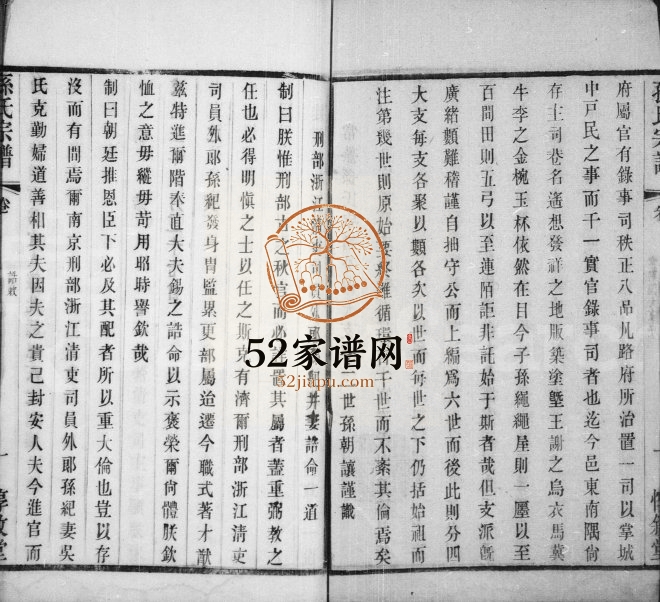 府屬官有錄事司秩正八品凡路府所治置一司以掌城
中戸民之事而千一實官錄事司者也迄今邑東南隅尙
存主司巷名遙想發祥之地版築塗墍王謝之烏衣馬糞
牛李之金椀玉杯依然在日今子孫繩繩屋則一廛以至
百間田則五弓以至連陌詎非託始于斯者哉但支派旣
廣緒纇難稽謹自抽守公而上編爲六世而後此則分四
大支每支各聚以類各次以世而每世之下仍括始祖而
注第幾世則原始要終雖循環千世而不紊其倫焉矣
世孫朝讓謹識
刑部浙江淸吏司員外郞妻誥命一道
制曰朕惟刑部古之秋官而必置其屬者蓋重弼教之
任也必得明愼之士以任之斯克有濟爾刑部浙江淸吏
司員外郞孫紀發身胄監累更部屬迨遷今職式著才猷
兹特進爾階奉直大夫錫之誥命以示褒榮爾尙體朕欽
恤之意毋縱毋苛用昭時譽欽哉
制曰朝廷推恩臣下必及其配者所以重大倫也豈以存
沒而有間焉爾南京刑部浙江淸吏司員外郞孫紀妻吳
氏克勤婦道善相其夫因夫之貴已封安人夫今進官而
孫氏宗譜
卷
誥敕
一
惇敘堂
52家谱网
52jiapu.com